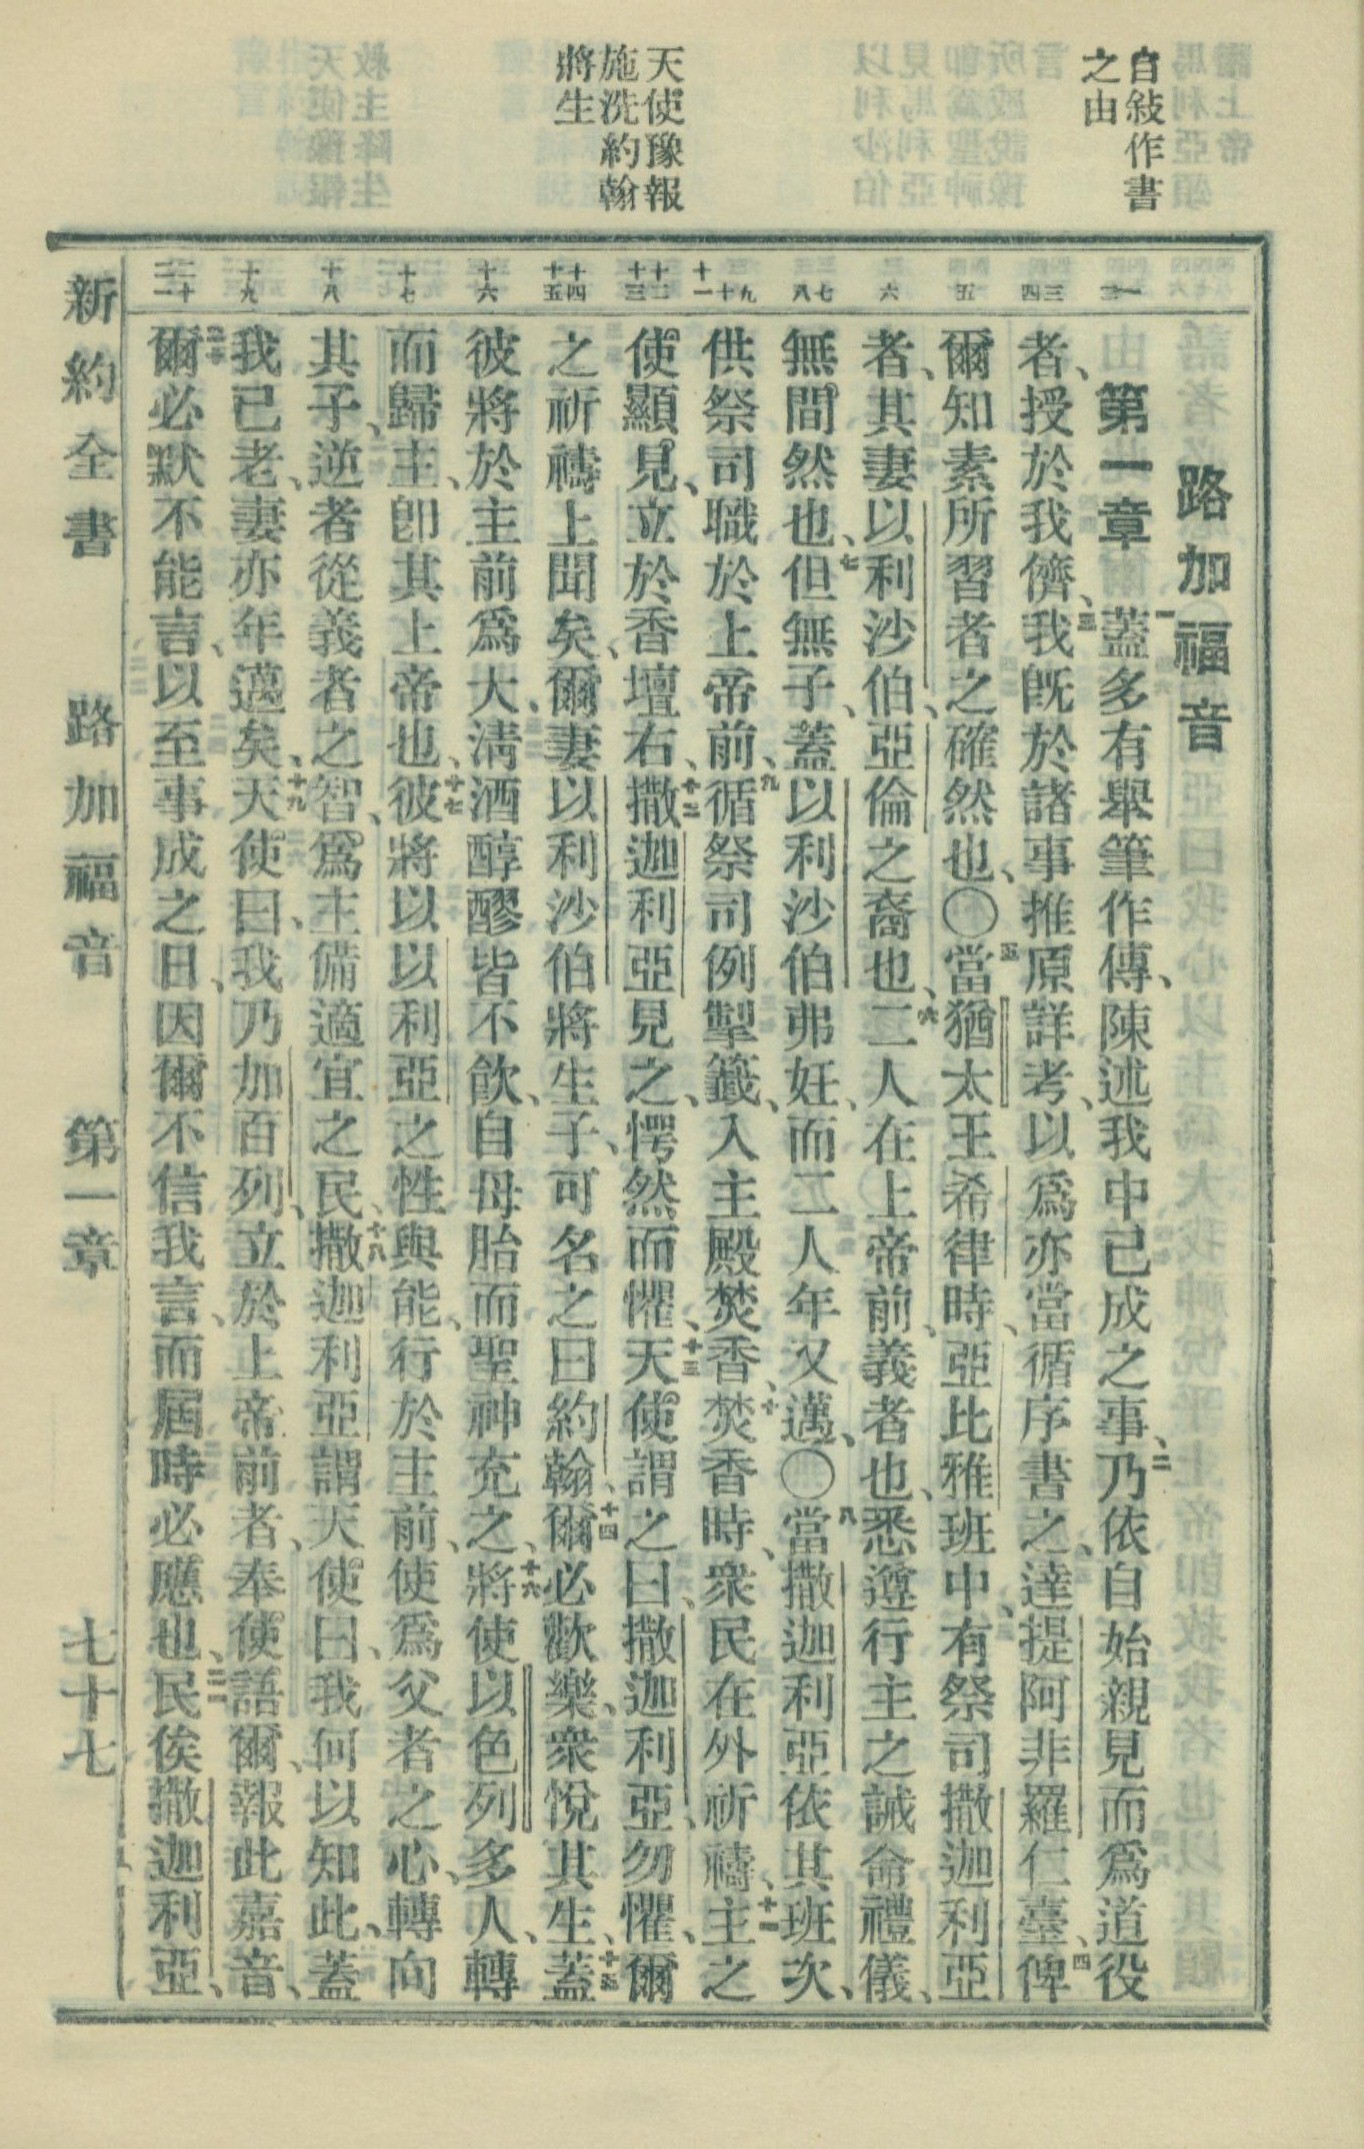 自敍作書
之由
天使豫報
施洗約翰
將生
一 二
三 四
五
六
七 八
九 十 十一
十二 十三
十四 十五
十六
十七
十八
十九
二十 二一
路加福音
第一章 一蓋多有舉筆作傳、陳述我中已成之事、二乃依自始親見而爲道役
者、授於我儕、三我旣於諸事推原詳考、以爲亦當循序書之、達提阿非羅仁臺、四俾
爾知素所習者之確然也、〇五當猶太王希律時、亞比雅班中、有祭司撒迦利亞
者、其妻以利沙伯、亞倫之裔也、六二人在上帝前、義者也、悉遵行主之誡命禮儀、
無間然也、七但無子、蓋以利沙伯弗妊、而二人年又邁、〇八當撒迦利亞依其班次、
供祭司職於上帝前、九循祭司例掣籤、入主殿焚香、十焚香時、衆民在外祈禱、十一主之
使顯見、立於香壇右、十二撒迦利亞見之、愕然而懼、十三天使謂之曰、撒迦利亞、勿懼、爾
之祈禱上聞矣、爾妻以利沙伯將生子、可名之曰約翰、十四爾必歡樂、衆悅其生、十五蓋
彼將於主前爲大、淸酒醇醪皆不飮、自母胎而聖神充之、十六將使以色列多人、轉
而歸主、卽其上帝也、十七彼將以以利亞之性與能、行於主前、使爲父者之心、轉向
其子、逆者從義者之智、爲主備適宜之民、十八撒迦利亞謂天使曰、我何以知此、蓋
我已老、妻亦年邁矣、十九天使曰、我乃加百列、立於上帝前者、奉使語爾、報此嘉音、
二十爾必默不能言、以至事成之日、因爾不信我言、而屆時必應也、二一民俟撒迦利亞、
新約全書 路加福音 第一章 七十七